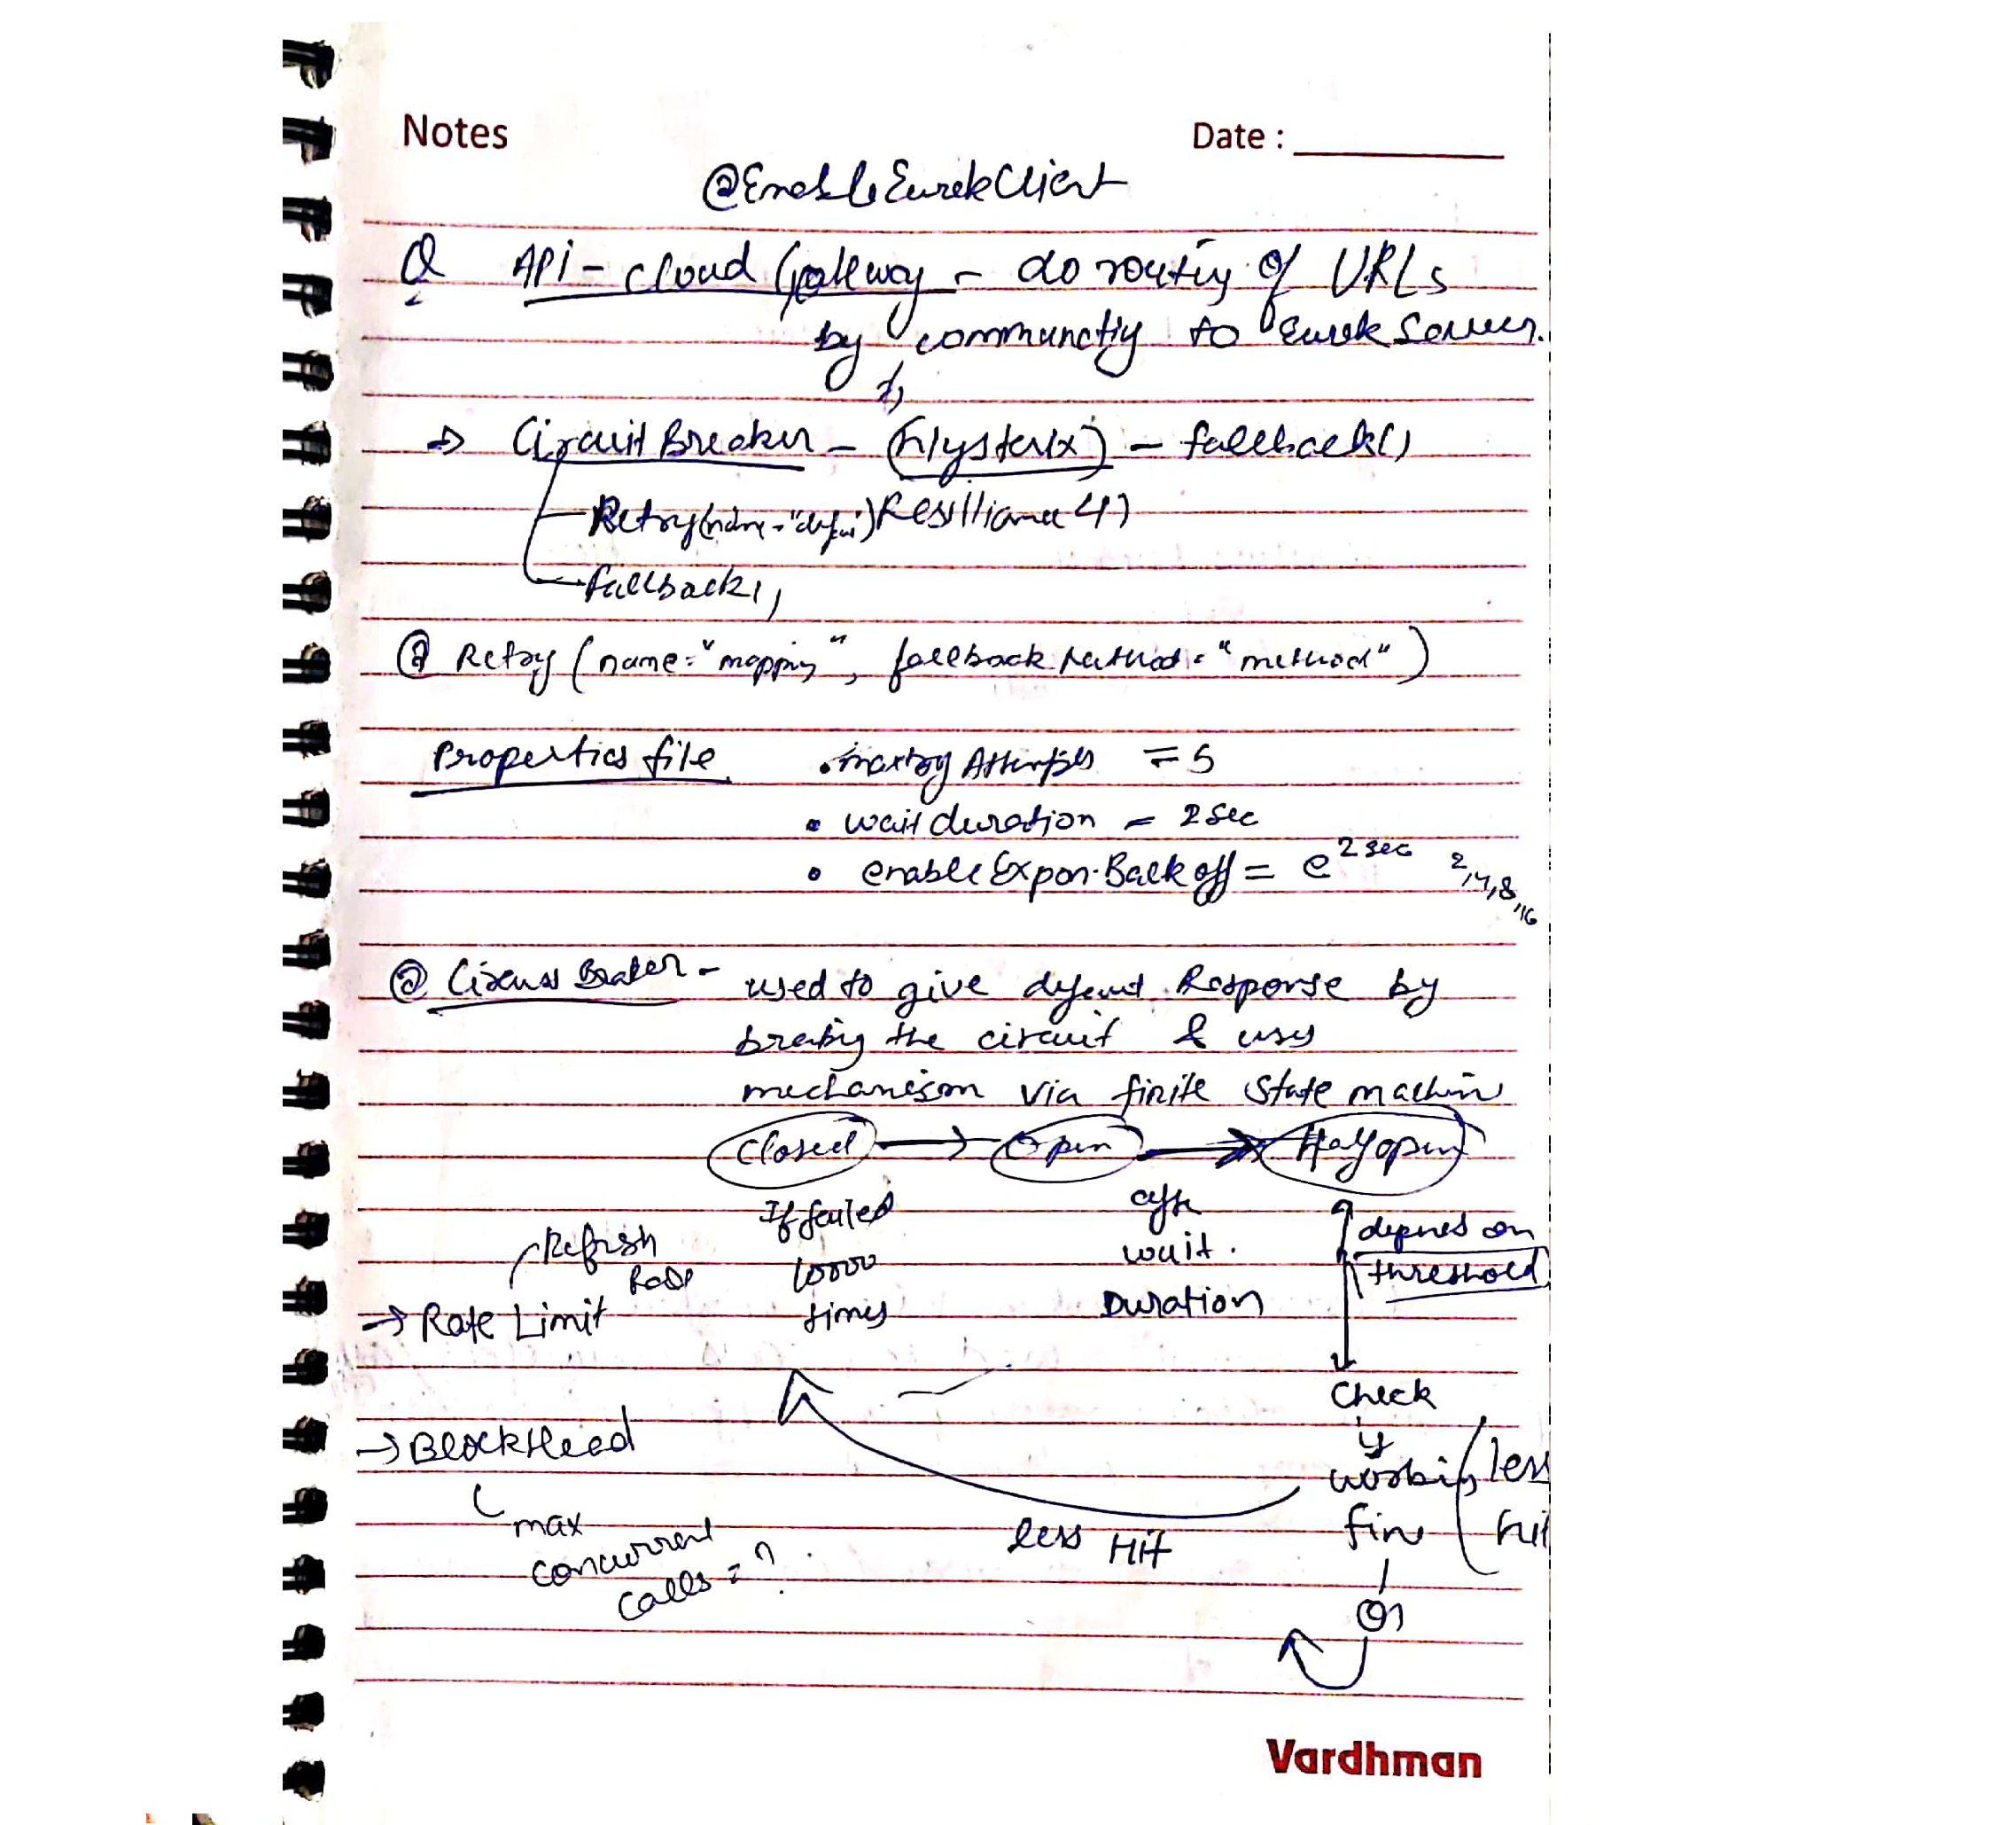 Notes
Date :
@EnableEurekClient
Q API - cloud Gateway - do routing of URLs
by communctig to Eurek Server.
⇒ Circuit Breaker - (Hysterix) - fallback()
Retry(name="defau") Resilliance 4J
fallback()
@ Retry (name="mapping", fallback Method = "method")
Properties file • maxtry Attempts = 5
• wait duration = 2 sec
• enable Expon. Back off = e 2 sec 2,4,8,16
@ Circus Beaker - used to give defaut Response by
braking the circuit & uses
mechanism via finite state machin
Closed → Open → Half open
If failed
10000
times
after
wait.
Duration
depends on
threshold
Refresh
Rate
→ Rate Limit
Check
→ BlockHeed
max
concurrent
calls = ?
working
fine
less
less Hit
Vardhman